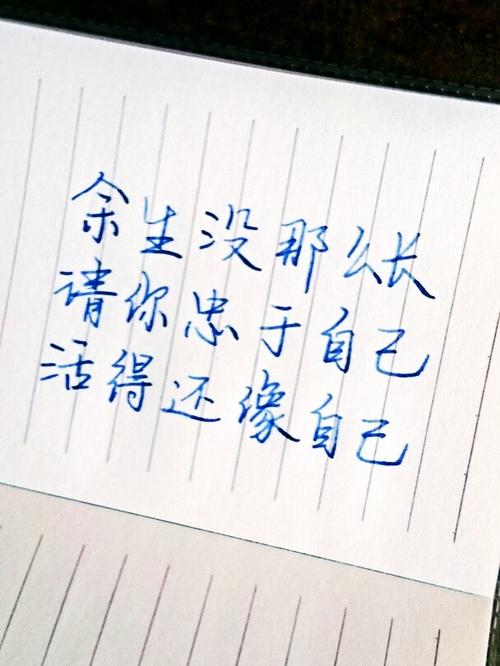 余生没那么长
请你忠于自己
活得还像自己